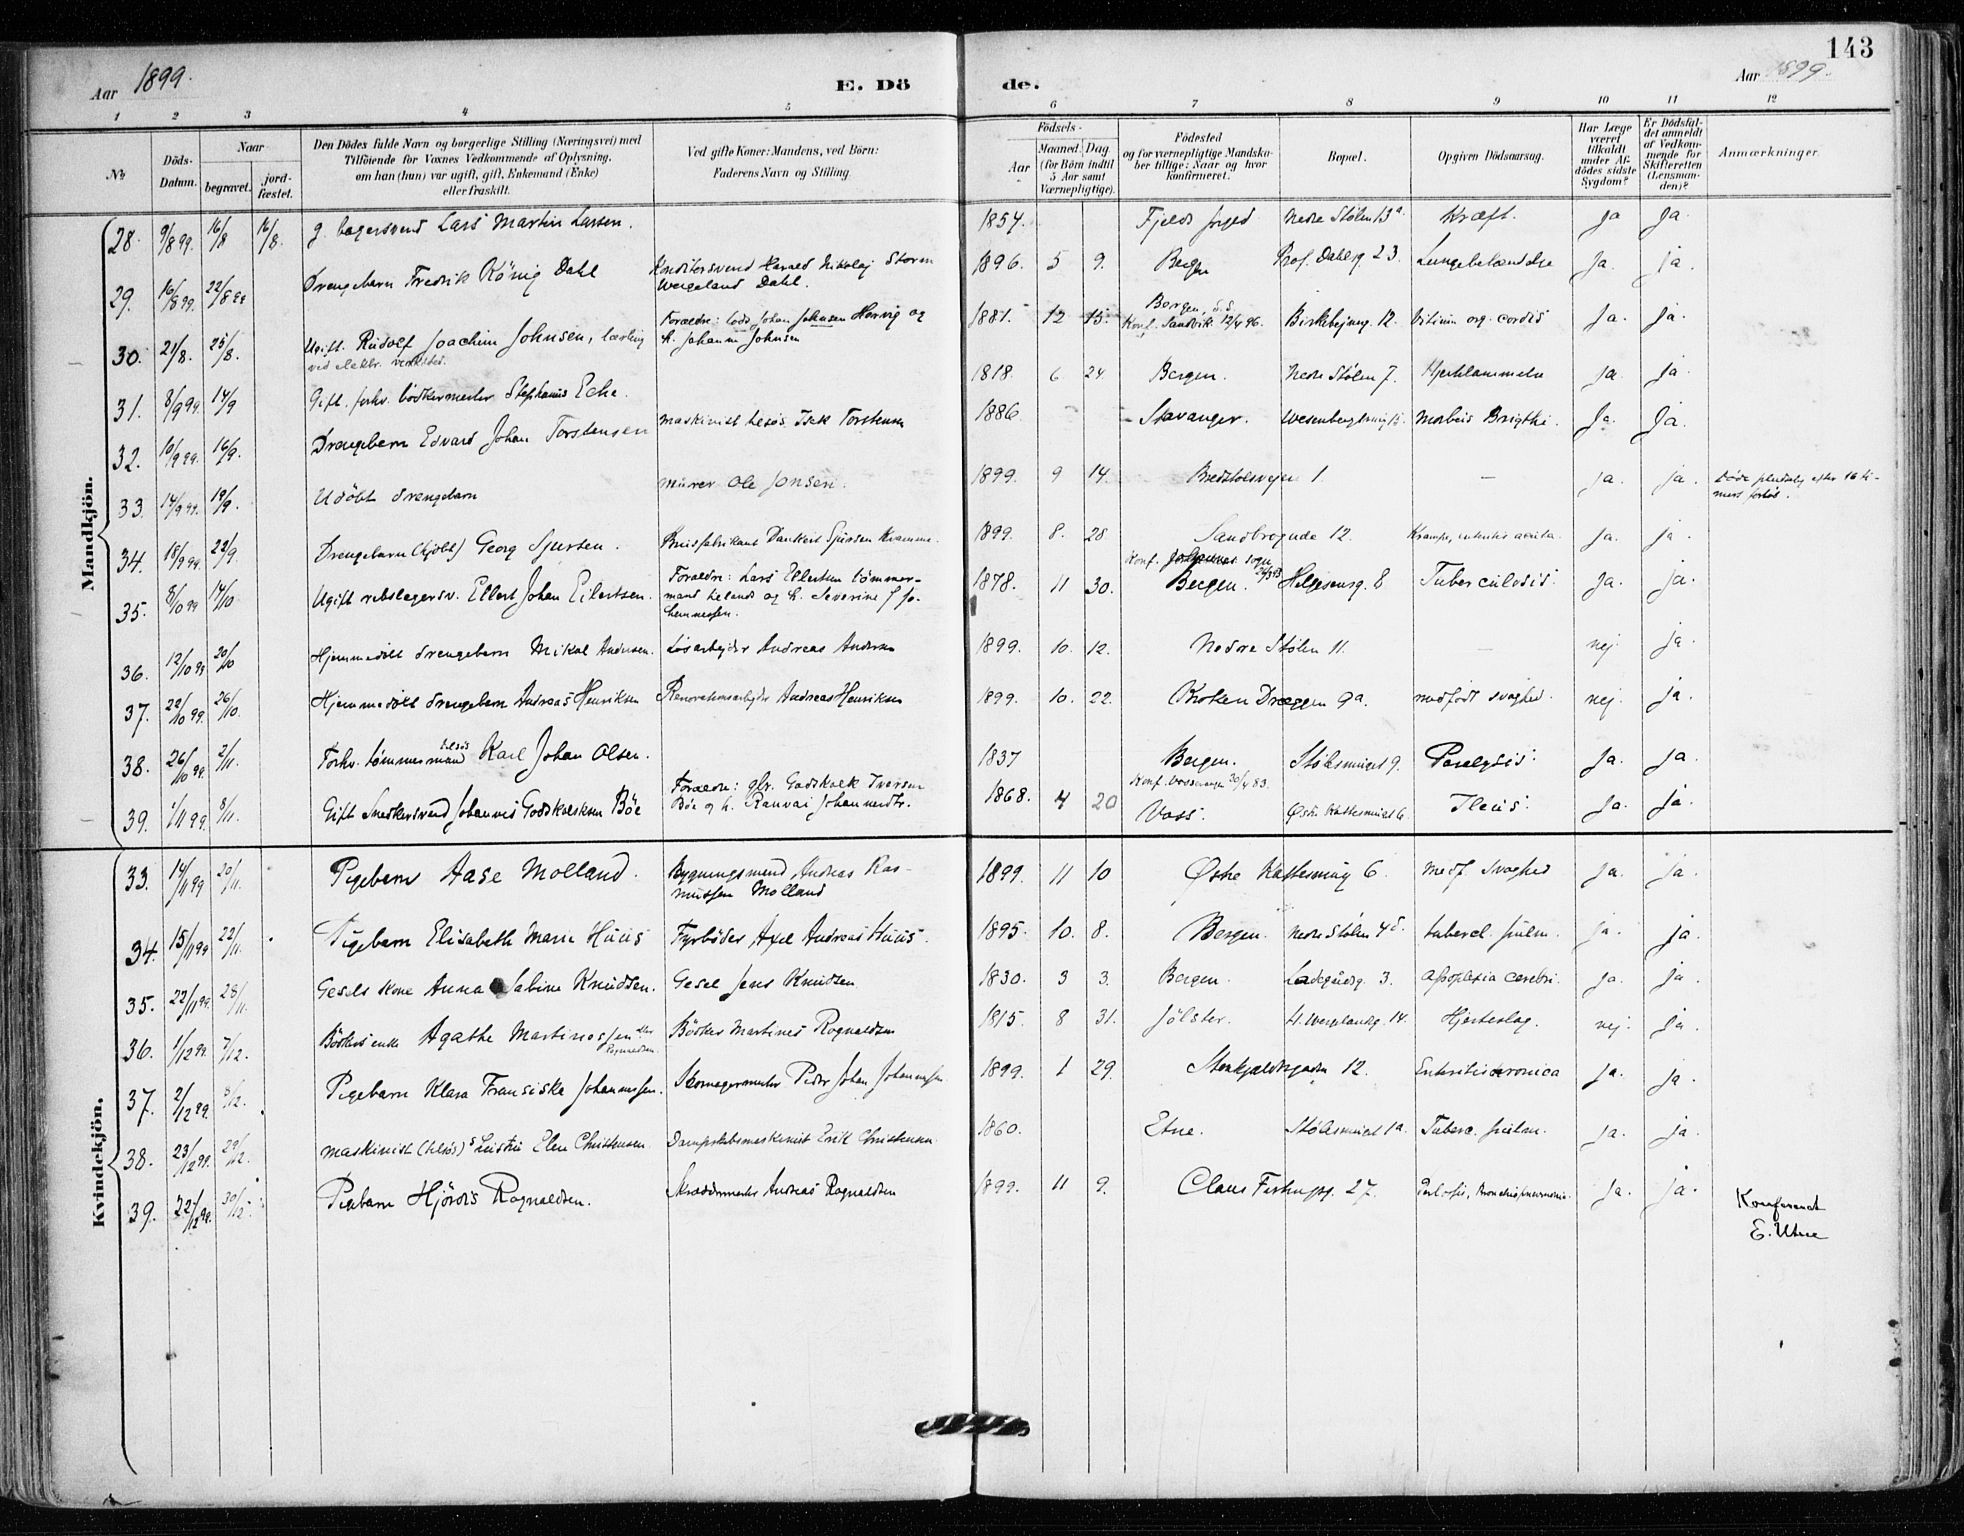 143
Aar 1899.
E. Dö
de.
Aar 1899.
1 2 3 4 5 6 7 8 9 10 11 12
No
Döds-Datum.
Naar
begravet.
jord-fæstet.
Den Dödes fulde Navn og borgerlige Stilling (Næringsvei) med
Tilföiende for Voxnes Vedkommende af Oplysning,
om han (hun) var ugift, gift, Enkemand (Enke)
eller fraskilt.
Ved gifte Koner: Mandens, ved Börn:
Faderens Navn og Stilling.
Födsels-
Aar
Maaned. Dag
(for Börn indtil
5 Aar samt
Værnepligtige).
Födested
og for værnepligtige Mandska-
ber tillige: Naar og hvor
konfirmeret.
Bopæl.
Opgiven Dödsaarsag.
Har Læge
været
tilkaldt
under Af-
dödes sidste
Sygdom?
Er Dödsfal-
det anmeldt
af Vedkom-
mende for
Skifteretten
(Lensman-
den)?
Anmærkninger.
Mandkjön.
28. 9/8 99. 16/8 16/8. g. bagersvend Lars Martin Larsen. 1854. Fjelds Nedre Stølen 13a Kræft. Ja Ja.
29. 16/8 99. 22/8 99 Drengebarn Fredrik König Dahl Konditorsvend Harald Nikolaj Storm
Wergeland Dahl. 1896. 5 9. Bergen Prof. Dahls g. 23. Lungebetændelse Ja. ja.
30. 21/8. 25/8. Ugift. Rudolf Joachim Johnsen, lærling
ved elektr. Forældre: Johan Johnsen og
h. Johanne Johnsen 1881. 12 15. Bergen,
Konf. Sandvik. 12/4 96. Birkebejnerg. 12. Vitium org. cordis Ja. ja.
31. 8/9 99. 14/9 Gift. forhv. bødkermester Stephanus Ecke. 1818. 6 24. Bergen. Nedre Stølen 7. Hjertelammelse ja. ja.
32. 10/9 99. 16/9. Drengebarn Edvard Johan Torstensen maskinist tilsøs Isak Torstensen 1886 Stavanger. Morbus Brigthi. Ja. Ja.
33. 14/9 99. 19/9. Udöbt drengebarn murer Ole Jonsen. 1899. 9 14. 1. – ja. ja. Døde pludselig efter 16 ti-
mers forløb.
34. 18/9 99. 23/9. Drengebarn (hjdöbt) Georg Sjursen. Brusfabrikant Sjursen 1899. 8. 28. Sandbrogade 12. Krampe, enteritis acuta. Ja. ja.
35. 8/10 99 14/10 Ugift rebslagersv. Ellert Johan Eilertsen. Forældre: Lars Ellertsen tömmer-
mand tillands og h. Severine f. Jo-
hannessen. 1878. 11 30. Konf. Johannes sogn
Bergen. Helgesensg. 8 Tuberculosis. Ja. ja.
36. 12/10 99 20/10 Hjemmedöbt drengebarn Mikal Andersen. Løsarbejder Andreas Andersen 1899. 10. 12. Nedre Stølen 11. – nej ja.
37. 22/10 99. 26/10. Hjemmedöbt drengebarn Andreas Henriksen Renovationsarbejder Andreas Henriksen 1899. 10. 22. Kroken Dreggen 9a. medfödt svaghed. nej. ja.
38. 26/10 99. 2/11. Forhv. tömmermand tilsøs Karl Johan Olsen. 1837 Bergen. Stölesmuget 9. Paralysis. Ja. ja.
39. 1/11 99. 8/11. Gift Snedkersvend Johannes Godskalksen Böe Forældre: gbr. Godskalk Iversen
Böe og h. Ranvai Johannesdtr. 1868. 4 20 Konf. Vossevangen 30/4 83.
Voss. Østre Kattesmuget 6. Ileus. Ja. ja.
Kvindekjön.
33. 14/11 99 20/11. Pigebarn Aase Molland. Bygningsmand Andreas Ras-
mussen Molland 1899. 11 10 Østre Kattesmug 6. Medf. Svaghed Ja. ja.
34. 15/11 99 22/11. Pigebarn Elisabeth Marie Huus Fyrböder Axel Andreas Huus. 1895. 10. 8. Bergen. Nedre Stølen 4d. tubercl. pulm. ja. ja.
35. 22/11 99. 28/11. Gesels kone Anna Sabine Knudsen. Gesel Jens Knudsen 1830. 3 3. Bergen. Ladegårdsg. 3. apoplexia cerebri. Ja. ja
36. 1/12 99. 7/12. Bödkers enke Agathe Martinessen eller
Rognaldsen. Bödker Martines Rognaldsen 1815. 8 31. Jölster. 14. Hjerteslag. nej. ja.
37. 2/12 99. 8/12. Pigebarn Klara Fransiska Johannessen. Skomagermester Peder Johan Johannessen. 1899. 1 29. 12. Enteritis kronica Ja. ja.
38. 23/12 99. 29/12. maskinist (tilsøs)s hustru Elen Christensen. Dampskibsmaskinist Erik Christensen 1860. Etne. Stölesmuget 1a. Tuberc. pulm. ja. ja.
39. 22/12 99. 30/12. Pigebarn Hjördis Rognaldsen. Skræddermester Andreas Rognaldsen 1899. 11 9. Claus 27. Bronchopneumonia. Ja. ja.
Konfereret
E. Utne